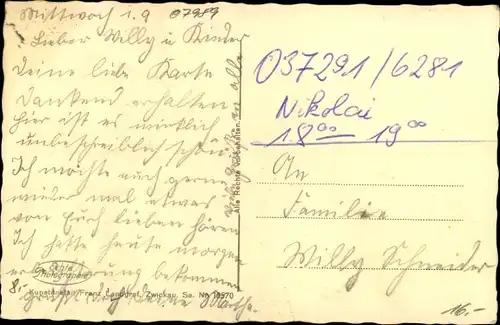 Mittwoch 1.9 07989
Lieber Willy u Kinder
Deine liebe Karte
dankend erhalten
hier ist es wirklich
unbeschreiblich schön
Ich möchte auch gerne
wieder mal etwas
von Euch lieben hören
Ich hatte heute morgen
bekommen
Martha.
Echte Photographie
8.-
Kunstanstalt Franz Landgraf, Zwickau, Sa. No
Alle Rechte vorbehalten
037291/6281
Nikolai
18 00 — 19 00
An
Familie
Willy Schneider
16.-